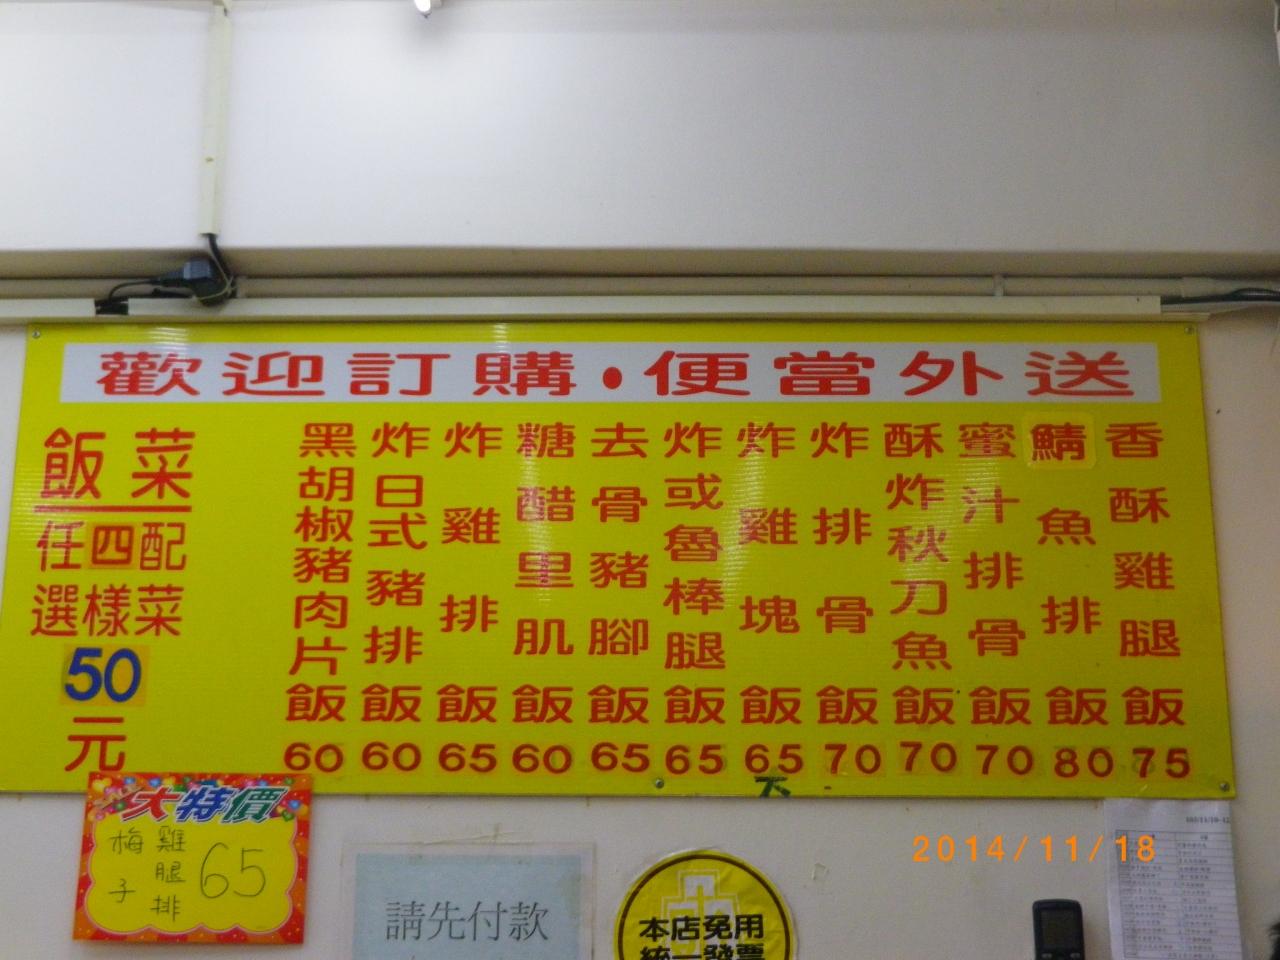 歡迎訂購·便當外送
香酥雞腿飯75
鯖魚排飯80
蜜汁排骨飯70
酥炸秋刀魚飯70
炸排骨飯70
炸雞塊飯65
炸或魯棒腿飯65
去骨豬腳飯65
糖醋里肌飯60
炸雞排飯65
炸日式豬排飯60
黑胡椒豬肉片飯60
飯菜
任四配
選樣菜
50
元
大特價
梅子
雞腿排
65
請先付款
本店免用
統一發票
2014/11/18